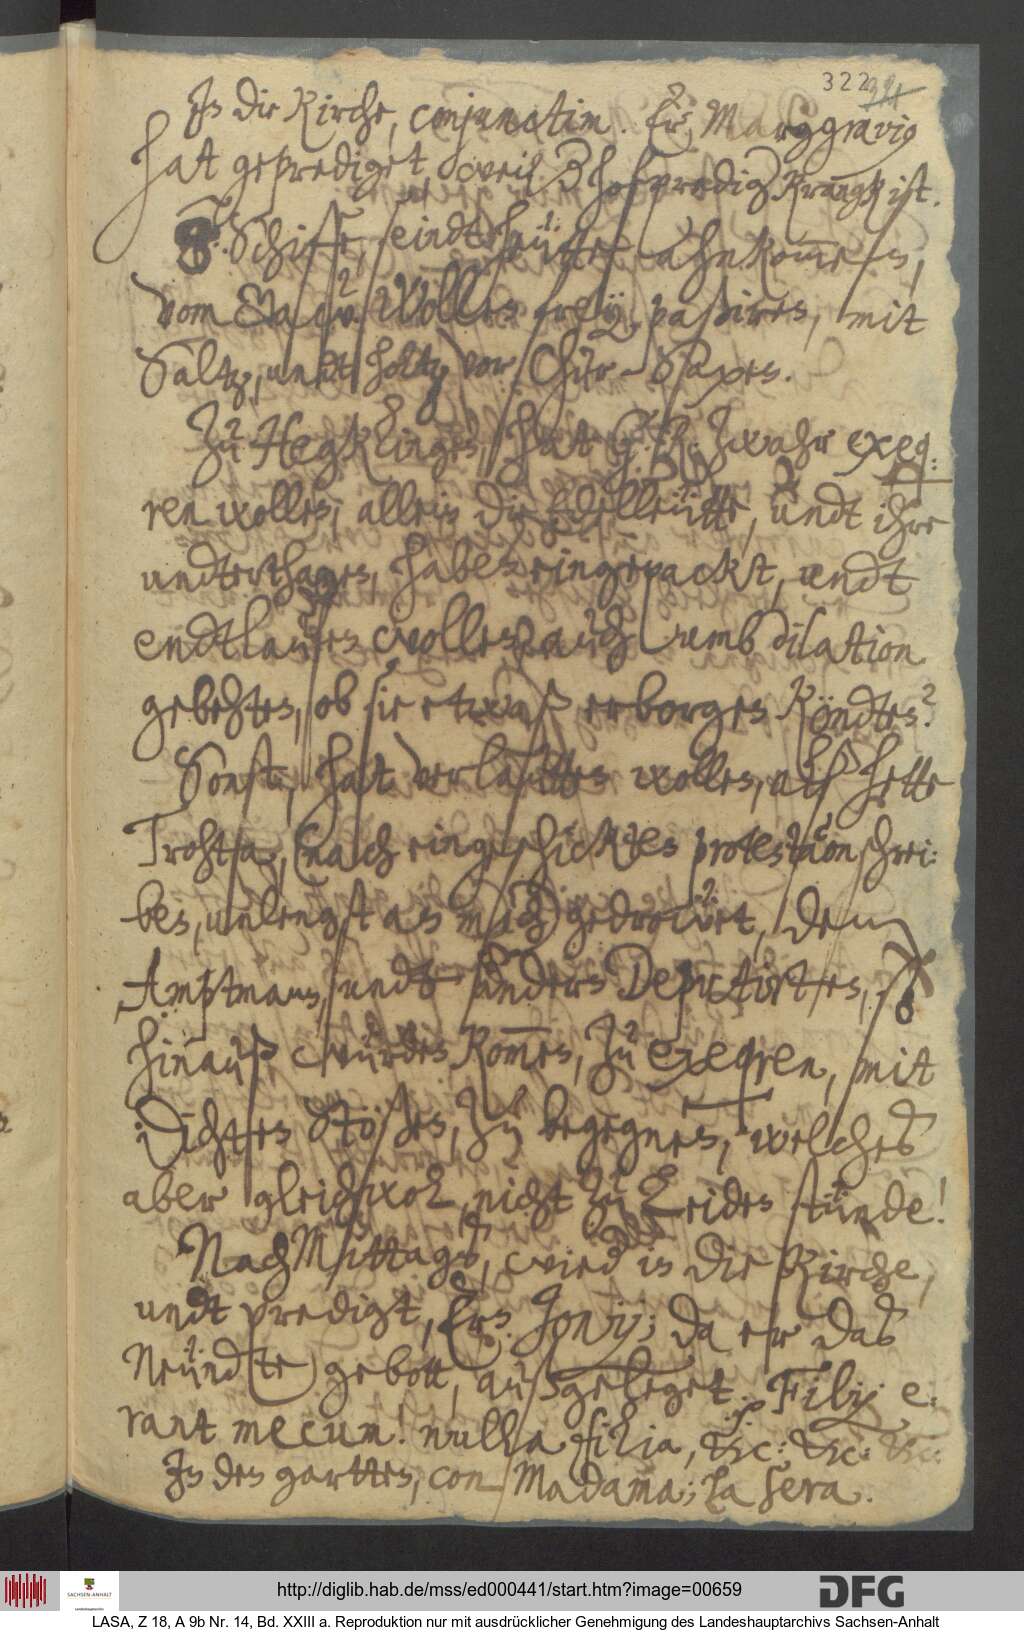 322
In die Kirche, conjunctim. Er: Marggravig
hat geprediget, weil der hofpredig: Krangk ist.
8 Schiffe, seindt heütte ahnkommen,
vom wollen frey, paßiren, mit
Saltz, undt holtz vor Chur-Saxen.
Zu Hegklingen, hat C. R. zwahr exeq:
ren wollen, allein die Edelleütte, undt ihre
undterthanen, haben eingepackt, undt
endtlauffen wollen, auch umb dilation
gebehten, ob sie etwaß erborgen köndten?
Sonst, hat verlautten wollen, alß hette
Trohta, (nach eingeschickten protestaonschrei:
ben, unlengst an mich) gedroüet, dem
Amptmann, undt andern Deputirten, so
hinauß, würden kommen, zu exeqren, mit
dichten stößen, zu begegnen, welches
aber gleichwol, nicht zu Leiden stünde!
Nach Mittags, wied in die Kirche,
undt predigt, Ern: Jonij; da er das
Neündte gebott, außgeleget. Filij e:
rant mecum! nulla filia, &c: &c: &c:
In den gartten, con Madama; la sera.
http://diglib.hab.de/mss/ed000441/start.htm?image=00659
SACHSEN-ANHALT
Landeshauptarchiv
DFG
LASA, Z 18, A 9b Nr. 14, Bd. XXIII a. Reproduktion nur mit ausdrücklicher Genehmigung des Landeshauptarchivs Sachsen-Anhalt